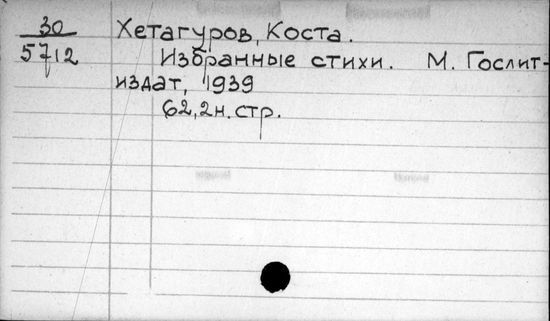 30
5712
Хетагуров, Коста.
Избранные стихи. М. Гослит-
издат, 1939
62, 2н. стр.